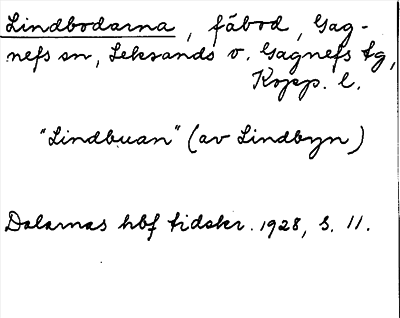 Lindbodarna, fäbod, Gag-
nefs sn, Leksands o. Gagnefs tg,
Kopp. l.
"Lindbuan" (av Lindbyn)
Dalarnas hbf tidskr. 1928, s. 11.